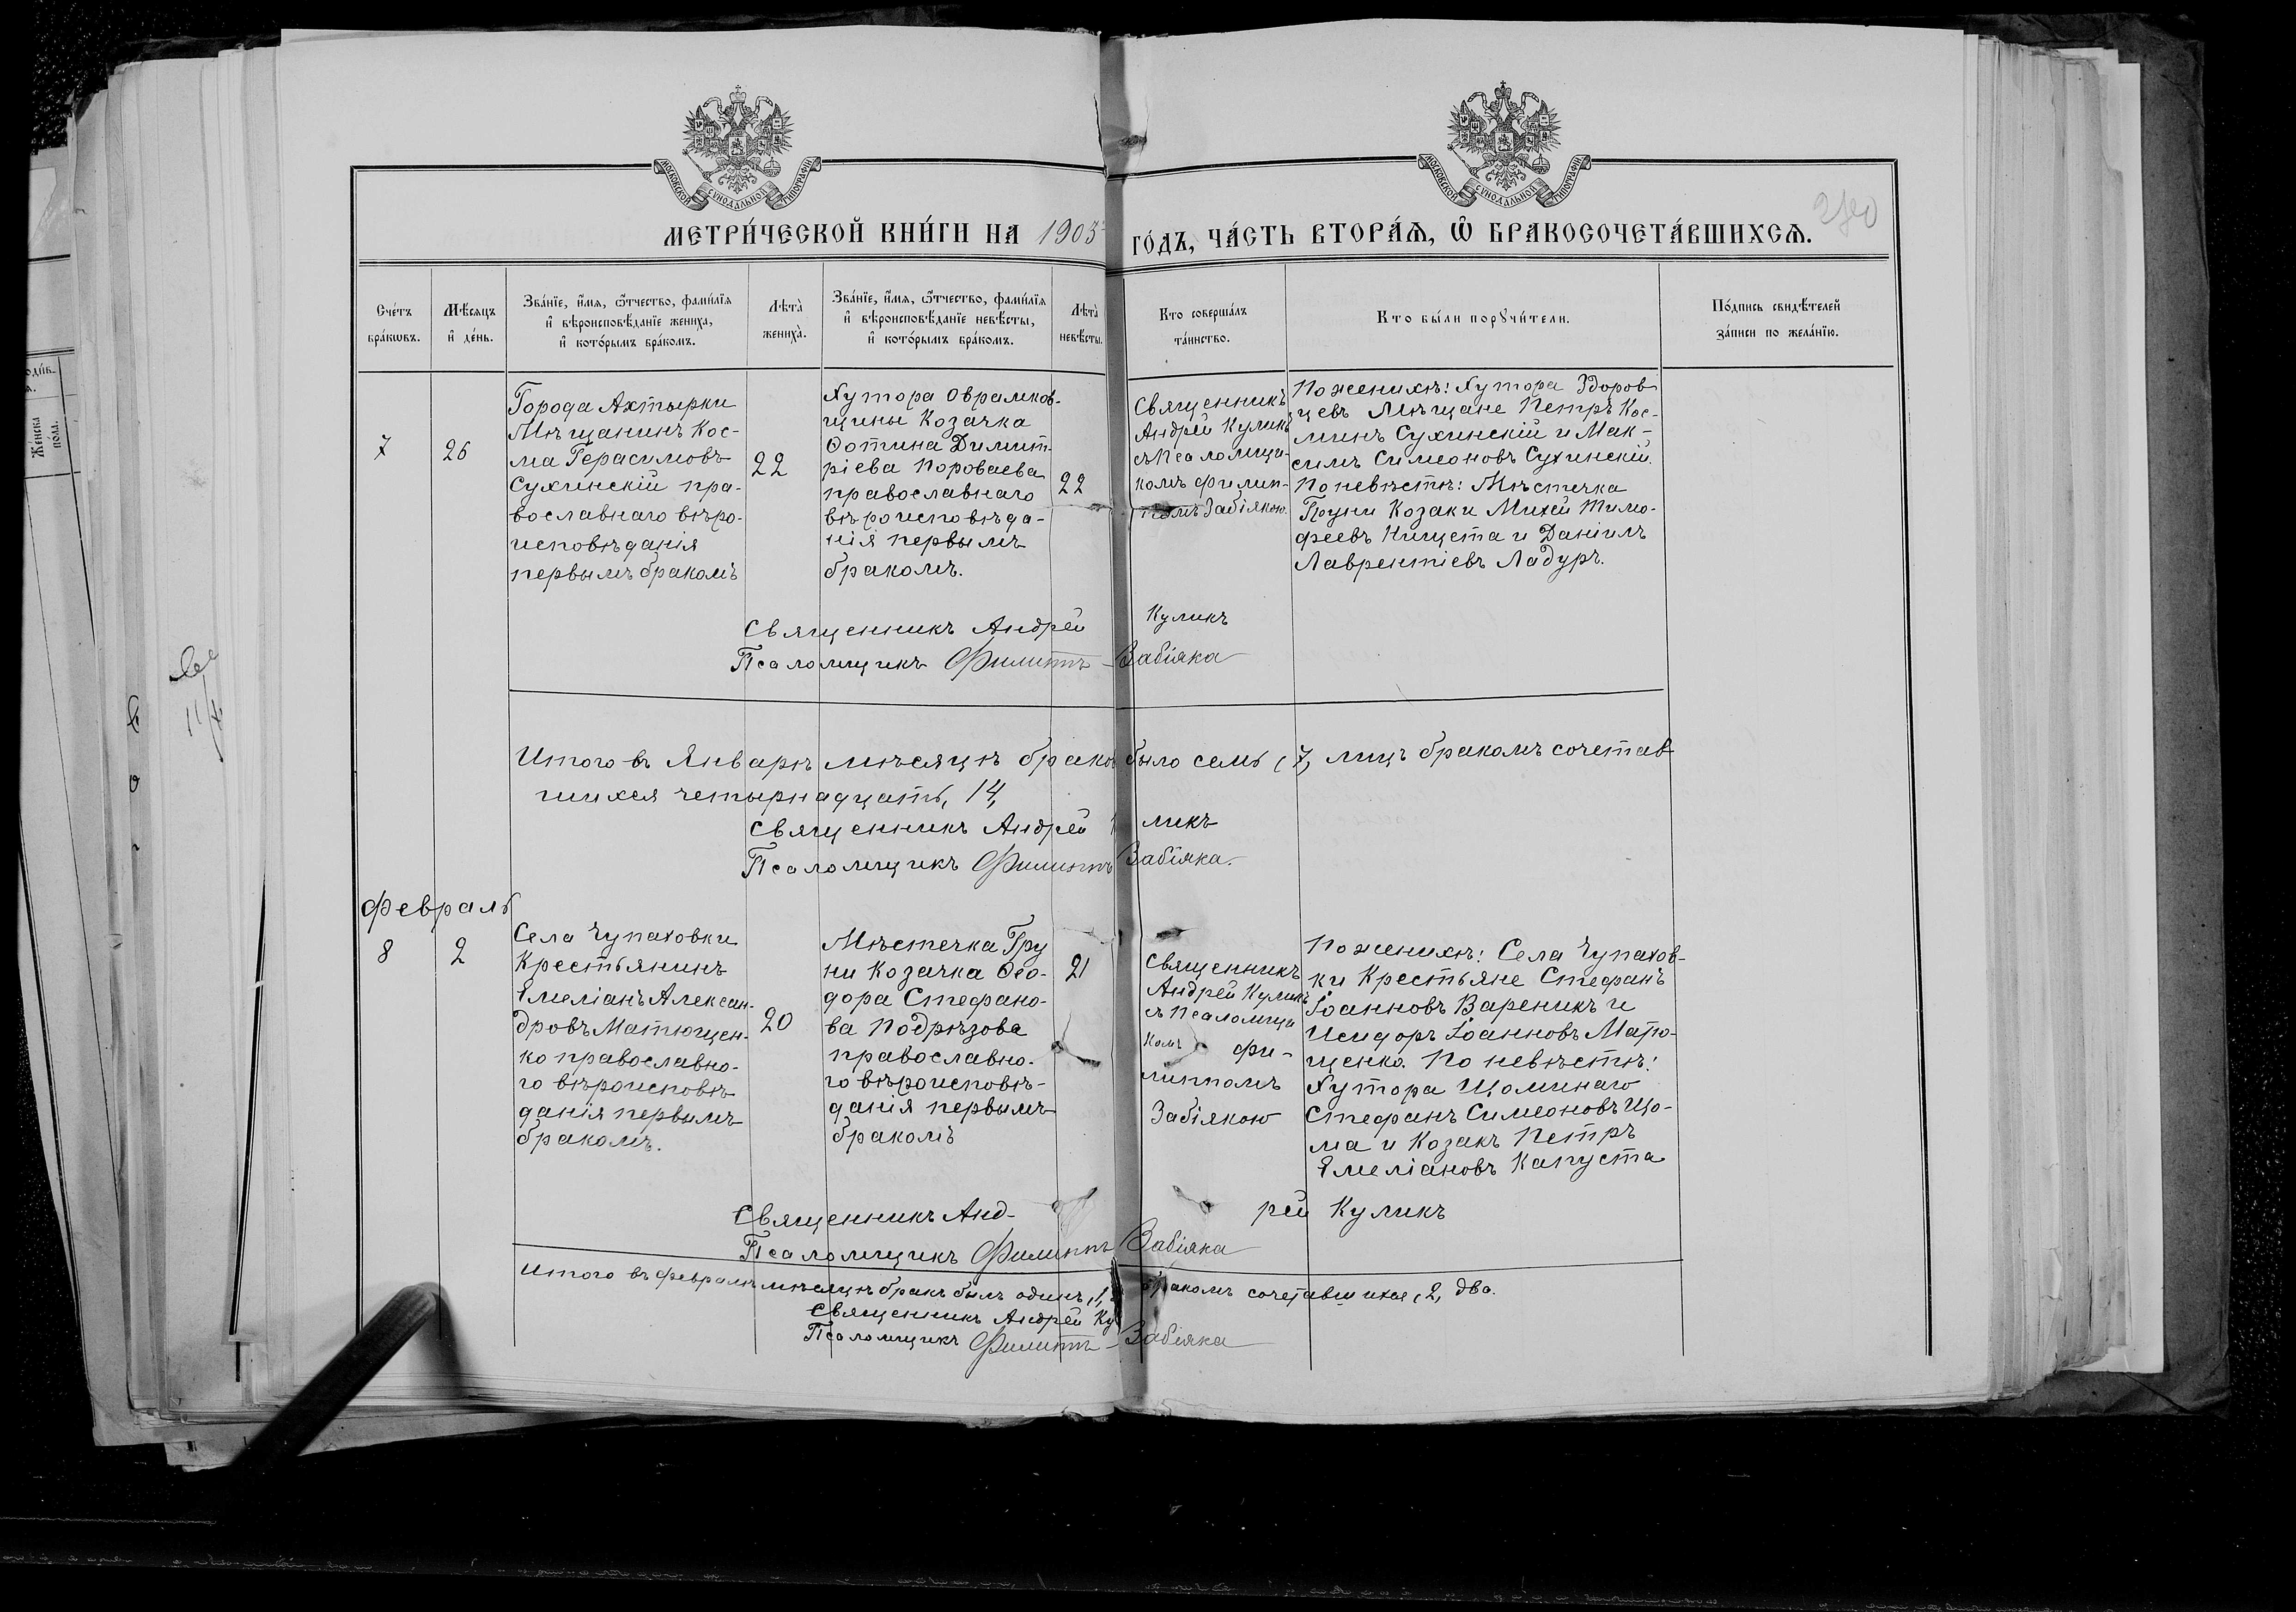 МОСКОВСКОЙ СУНОДАЛЬНОЙ ТИПОГРАФІИ
МОСКОВСКОЙ СУНОДАЛЬНОЙ ТИПОГРАФІИ
МЕТРИ́ЧЕСКОЙ КНИ́ГИ НА 1903 ГО́ДЪ, ЧА́СТЬ ВТОРА́Ѧ, Ѽ БРАКОСОЧЕТА́ВШИХСѦ.
Сче́тъ
бра́кѡвъ.
Мѣ́сяцъ
и҆ де́нь.
Зва́нїе, и҆́мя, ѻ҆́тчество, фами́лїя
и҆ вѣроисповѣ́данїе жениха̀,
и҆ кото́рымъ бра́комъ.
Лѣта̀
жениха̀.
Зва́нїе, и҆́мя, ѻ҆́тчество, фами́лїя
и҆ вѣроисповѣ́данїе невѣ́сты,
и҆ кото́рымъ бра́комъ.
Лѣта̀
невѣ́сты.
Кто соверша́лъ
та́инство.
Кто бы́ли порꙋчи́тели.
По́дпись свидѣ́телей
за́писи по жела́нїю.
Же́нска
по́ла.
7
26
Города Ахтырки
Мѣщанинъ Кос-
ма Герасимовъ
Сухинскій пра-
вославнаго вѣро-
исповѣданія
первымъ бракомъ
22
Хутора Оврамков-
щины Козачка
Ѳотина Димит-
ріева Пороваева
православнаго
вѣроисповѣда-
нія первымъ
бракомъ.
22
Священникъ
Андрей Куликъ
съ Псаломщи-
комъ Филип-
помъ Забіякою.
По женихѣ: Хутора Здоров
цевъ Мѣщане Петръ Кос-
минъ Сухинскій и Мак-
симъ Симеоновъ Сухинскій.
По невѣстѣ: Мѣстечка
Груни Козаки Михей Тимо-
феевъ Нищета и Даніилъ
Лаврентіевъ Ладуръ.
Священникъ Андрей Куликъ
Псаломщикъ Филиппъ Забіяка
Итого въ Январѣ мѣсяцѣ браковъ было семь (7) лицъ бракомъ сочетав
шихся четырнадцать, 14,
Священникъ Андрей ликъ
Псаломщикъ Филиппъ Забіяка.
Февраль
8
2
Села Чупаховки
Крестьянинъ
Емеліанъ Алексан-
дровъ Матющен-
ко православна-
го вѣроисповѣ
данія первымъ
бракомъ.
20
Мѣстечка Гру
ни Козачка Ѳео-
дора Стефано-
ва Подрѣзова
православна-
го вѣроисповѣ-
данія первымъ
бракомъ
21
Священникъ
Андрей Куликъ
съ Псаломщи
комъ Фи-
липпомъ
Забіякою
По женихѣ: Села Чупахов-
ки Крестьяне Стефанъ
Іоанновъ Вареникъ и
Исидоръ Іоанновъ Матю-
щенко. По невѣстѣ:
Хутора Цоминаго
Стефанъ Симеоновъ Цо-
ма и Козакъ Петръ
Емеліановъ Капуста
Священникъ Анд- рей Куликъ
Псаломщикъ Филиппъ Забіяка
Итого въ февралѣ мѣсяцѣ бракъ былъ одинъ, 1, бракомъ сочетавшихся, 2, два.
Священникъ Андрей Ку
Псаломщикъ Филиппъ Забіяка